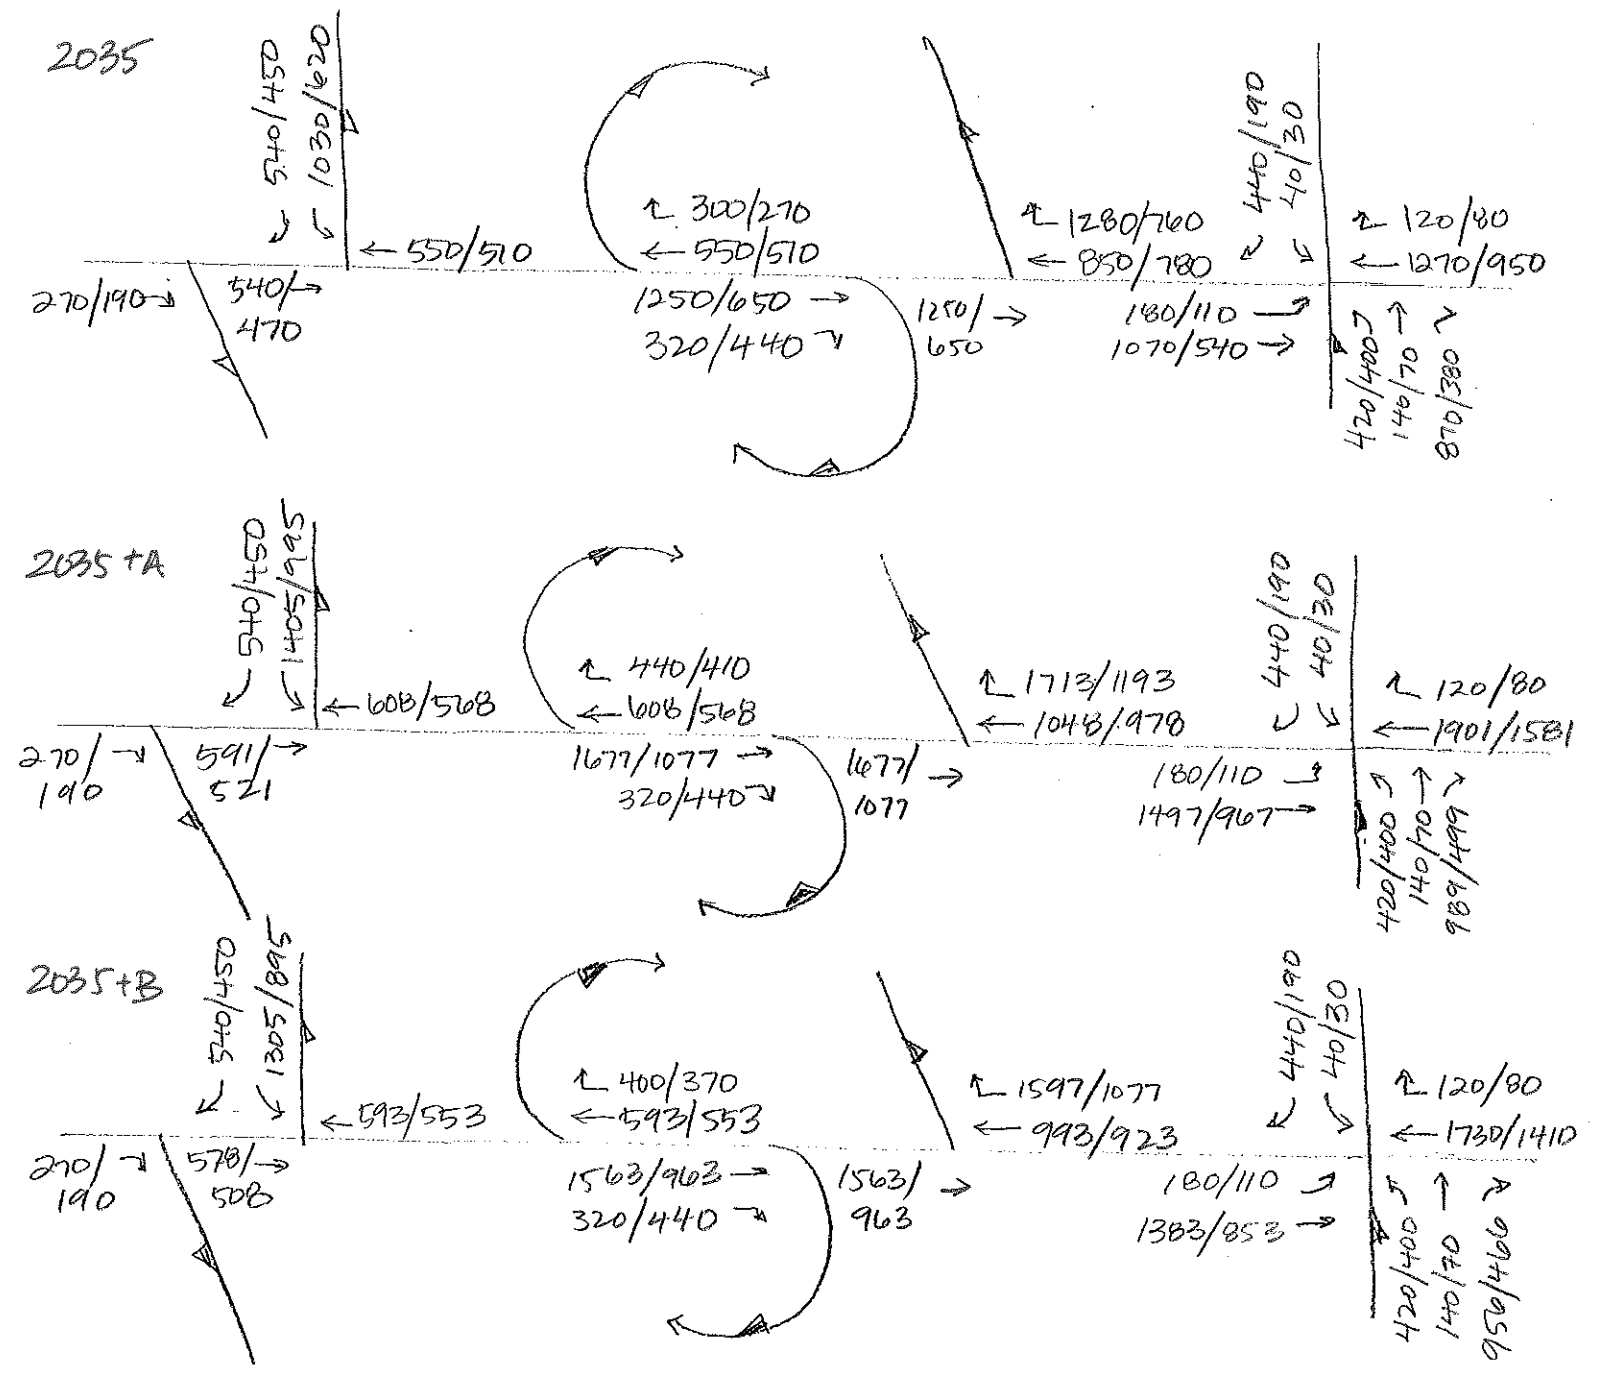 2035
540/450
1030/620
← 550/510
270/190
540/ →
470
300/270
← 550/510
1250/650 →
320/440
1250/ →
650
1280/760
← 850/780
440/190
40/30
120/80
← 1270/950
180/110
1070/540 →
420/400
140/70 →
870/380
2035+A
540/450
1405/995
← 608/568
270/
190
591/ →
521
440/410
← 608/568
1677/1077 →
320/440
1677/ →
1077
1713/1193
← 1048/978
440/190
40/30
120/80
← 1901/1581
180/110
1497/967 →
420/400
140/70 →
989/499
2035+B
540/450
1305/895
← 593/553
270/
190
578/ →
508
400/370
← 593/553
1563/963 →
320/440
1563/ →
963
1597/1077
← 993/923
440/190
40/30
120/80
← 1730/1410
180/110
1383/853 →
420/400
140/70 →
956/466